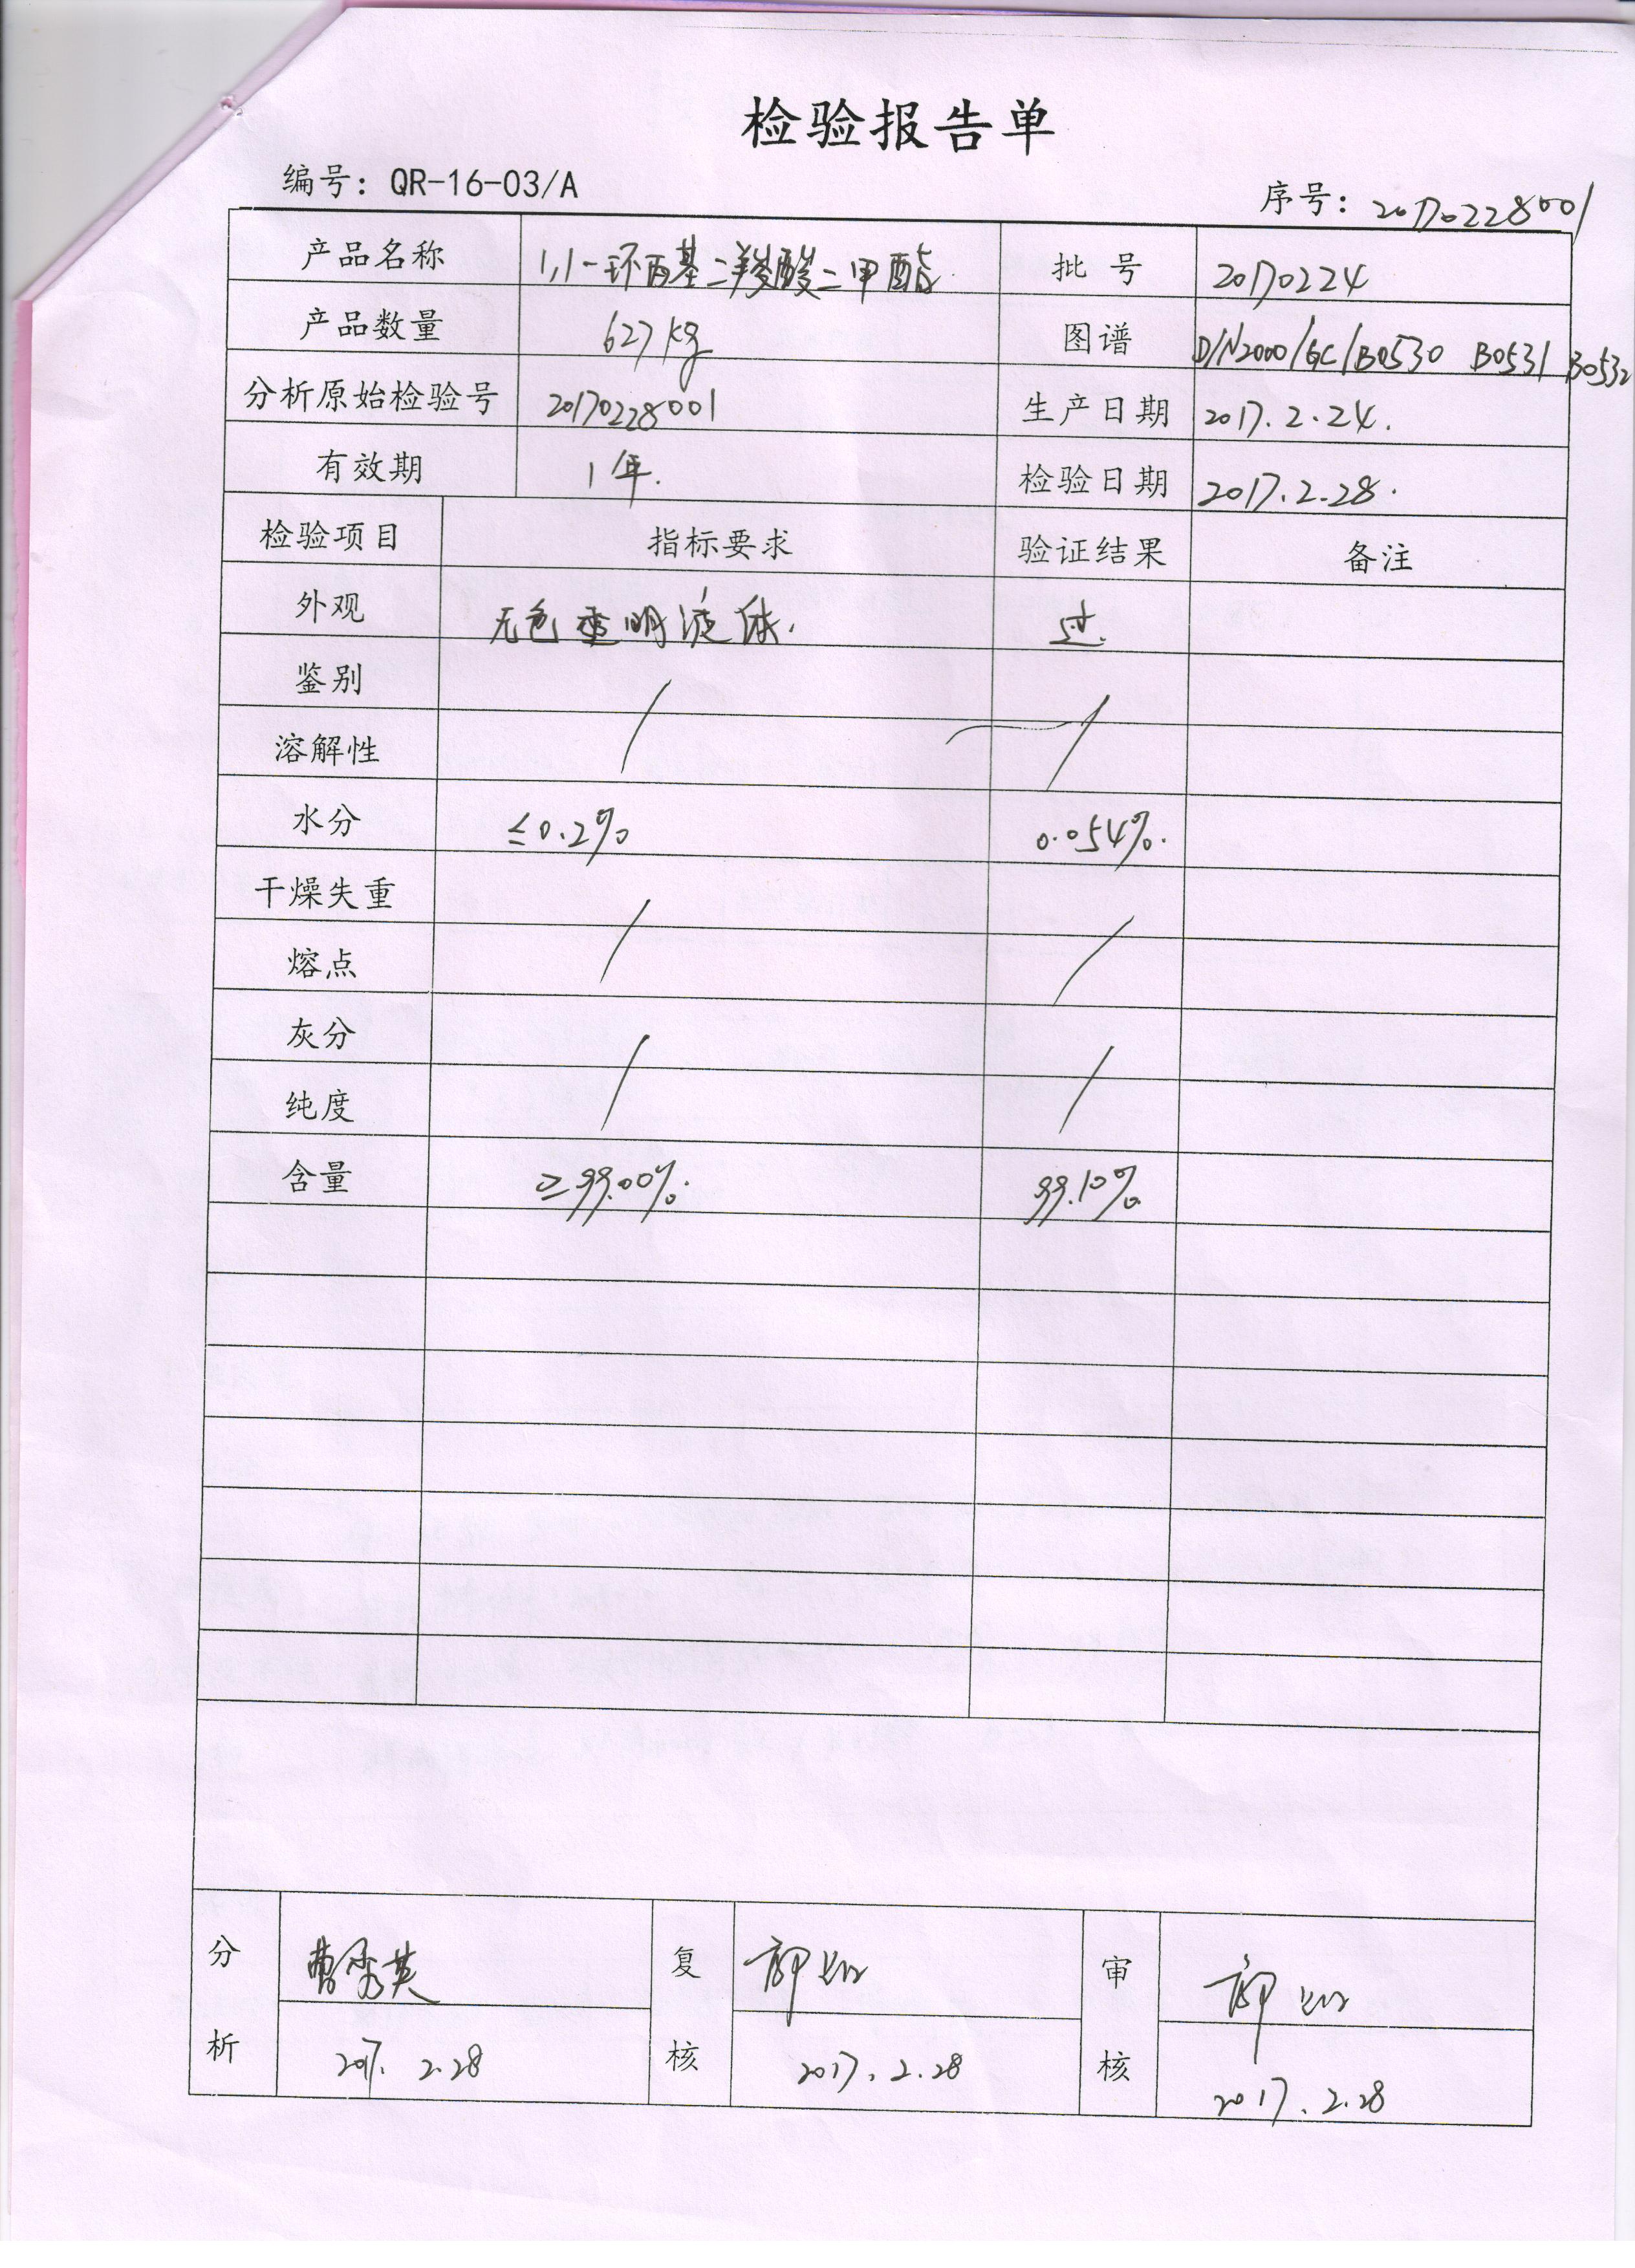 检验报告单
编号：QR-16-03/A
序号：20170228001
产品名称 1,1-环丙基二羧酸二甲酯 批号 20170224
产品数量 627kg 图谱 D/N2000/GC/B0530 B0531 B0532
分析原始检验号 20170228001 生产日期 2017.2.24.
有效期 1年. 检验日期 2017.2.28.
检验项目 指标要求 验证结果 备注
外观 无色透明液体. 过.
鉴别 / /
溶解性
水分 ≤0.2% 0.054%.
干燥失重 / /
熔点
灰分 / /
纯度
含量 ≥99.00%. 99.10%
分析 曹秀英 复核 审核
2017.2.28 2017.2.28 2017.2.28